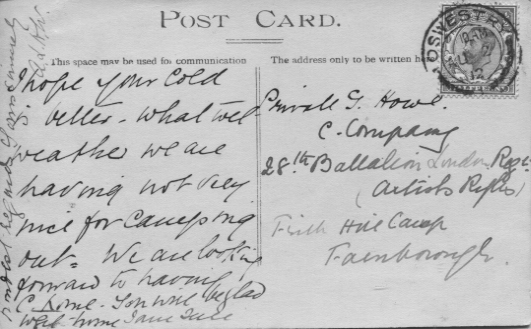 POST CARD.
This space may be used for communication
The address only to be written here
OSWESTRY
12
I hope your Cold
is better - what wet
weather we are
having not very
nice for Camping
out - We are looking
forward to having
C. home - You will be glad
home I am sure
Kindest regards yours sincerely
Private G. Howe
C. Company
28th Battalion London Regt
(Artists Rifles)
Frith Hill Camp
Farnborough.